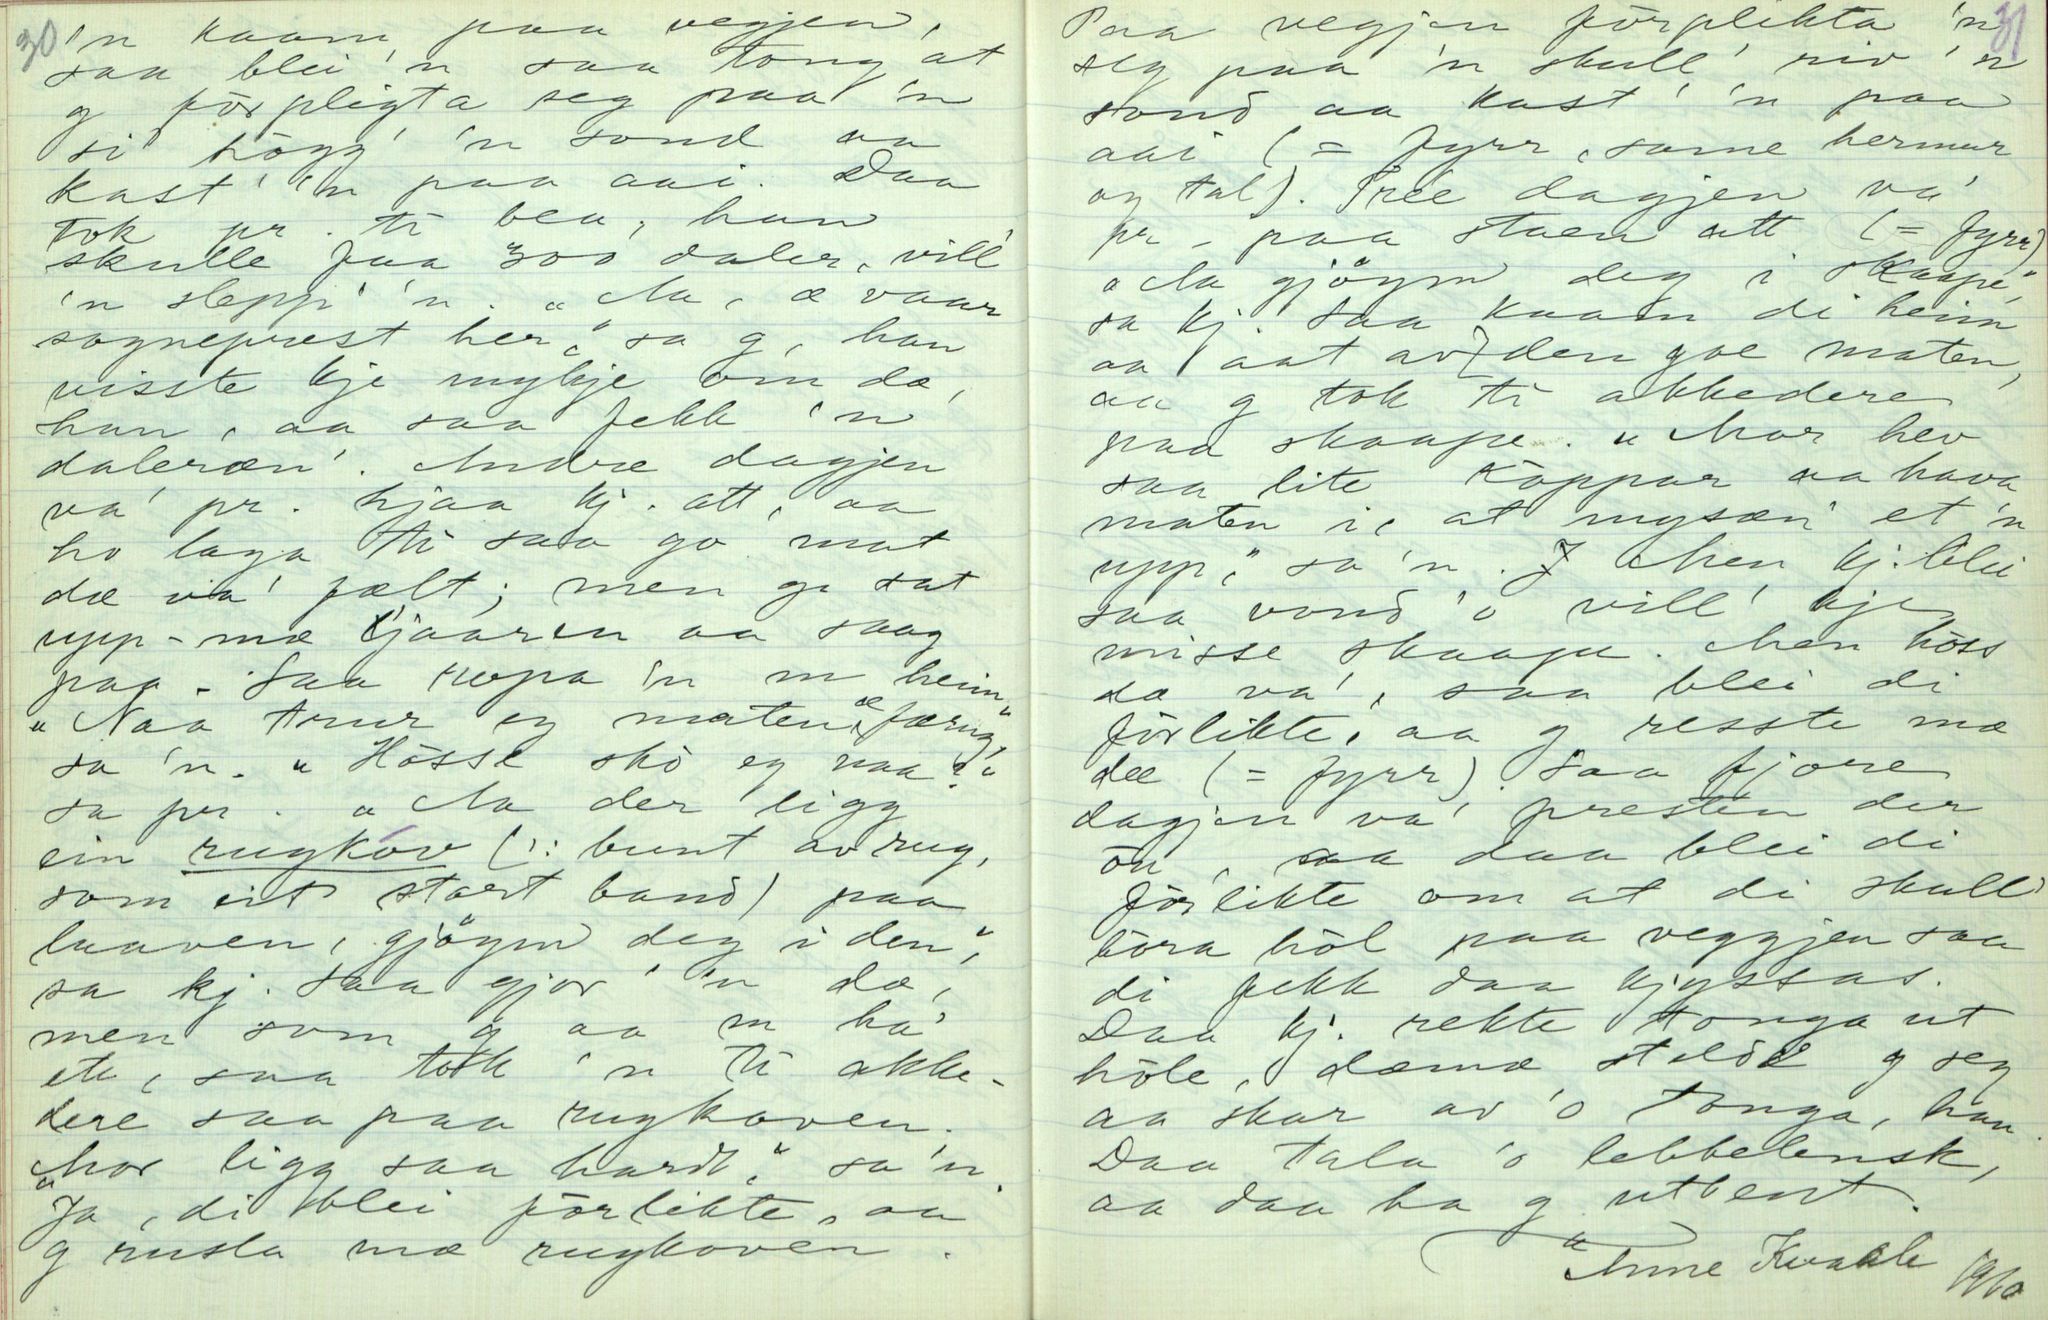 30
'n kaam paa vegjen,
saa blei 'n saa tong at
g förpligta seg paa 'n
si högg' 'n sond aa
kast' 'n paa aai. Daa
tok pr. ti bea, han
skulle faa 300 daler, vill
'n slepp' 'n. "Aa, æ vaar
sogneprest her", sa g, han
visste kje mykje om dæ,
han, aa saa fekk 'n
daleræn'. Andre dagjen
va' pr. hjaa kj. att, aa
ho laga ti saa go mat
dæ va' fælt; men g. sat
upp-mæ ljaaren aa saag
paa. Saa ropa 'n m heim.
"Naa trur eg maten æ færug",
sa 'n. "Hösse ska eg naa?"
sa pr. "Aa der ligg
ein rugkov (ɔ: bunt av rug,
som eit stort band) paa
laaven, gjöym deg i den",
sa kj. Saa gjor' 'n dæ,
men som g aa m ha'
ete, saa tok 'n ti akke-
dere saa paa rugkoven.
"Mor ligg saa hardt", sa 'n.
Ja, di blei förlikte, aa
g rusla mæ rugkoven.
31
Paa vegjen förplikta 'n
seg paa 'n skull' riv' 'n
sond aa kast' 'n paa
aai (= fyrr, same hermur
og tal). Tree dagjen va'
pr. paa staen att (= fyrr)
"Aa gjöym deg i skaape",
sa kj. Saa kaam di heim
aa aat av den goe maten,
aa g tok ti akkedere
paa skaape. "Mor hev
saa lite köppar aa hava
maten i, at mysæn' et 'n
upp", sa 'n. Men kj. blei
saa vond 'o vill' kje
misse skaape. Men höss
dæ va', saa blei di
förlikte, aa g resste mæ
dæ (= fyrr). Saa fjore
dagjen va' presten der
ön, aa daa blei di
förlikte om at di skull'
böra höl paa veggjen saa
di fekk daa kjyssas.
Daa kj. rekte tonga ut
höle, dæmæ stelde g seg
aa skar av 'o tonga, han.
Daa tala 'o lebbelensk,
aa daa ha g utbent.
Anne Kvaale 1910